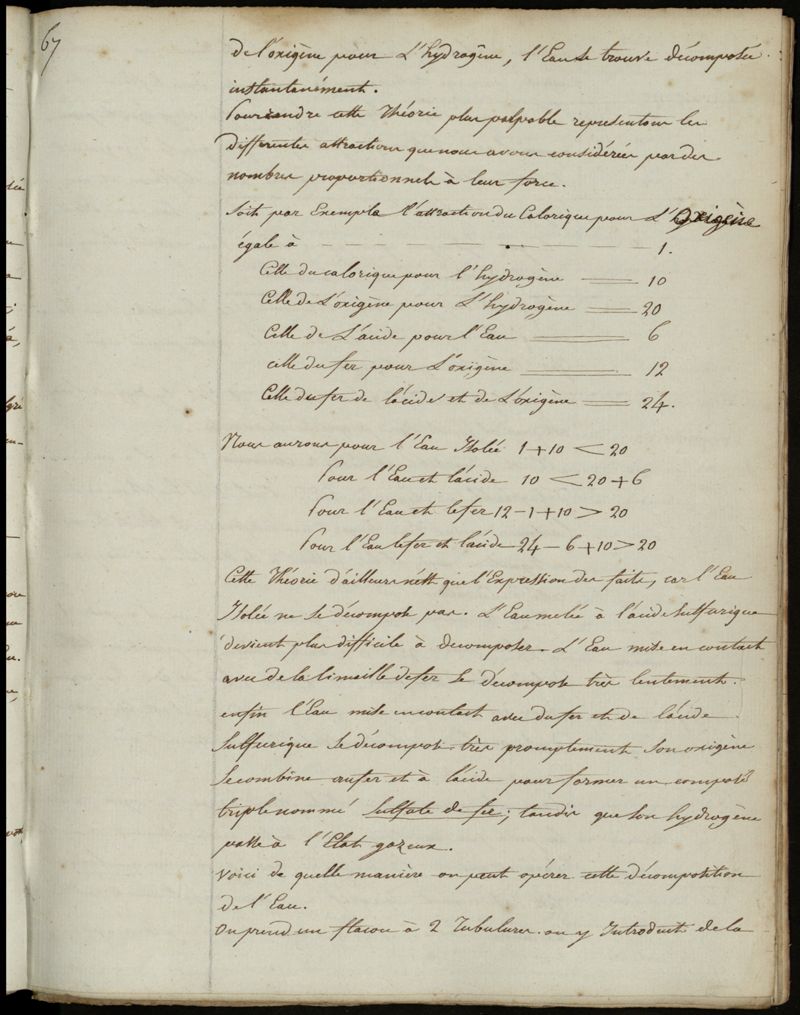 67
de l'oxigène pour L'hydrogène, l'Eau se trouve décomposée
instantanément.
Pour rendre cette Théorie plus palpable representons les
Differentes attractions que nous avons considérées par des
nombres proportionnels à leur force.
Soit par Exemple l'attraction du Calorique pour L'Oxigène
égale à — — — 1.
Celle du calorique pour l'hydrogène —— 10
Celle de L'oxigène pour L'hydrogène —— 20
Celle de L'acide pour l'Eau —— 6
celle du fer pour L'oxigène —— 12
Celle du fer de l'acide et de L'oxigène —— 24.
Nous aurons pour l'Eau Isolée 1 + 10 < 20
Pour l'Eau et l'acide 10 < 20 + 6
Pour l'Eau et le fer 12 - 1 + 10 > 20
Pour l'Eau le fer et l'acide 24 - 6 + 10 > 20
Cette Théorie d'ailleurs n'est que l'Expression des faits, car l'Eau
Isolée ne se décompose pas. L'Eau melée à l'acide Sulfurique
devient plus difficile à decomposer. L'Eau mise en contact
avec de la limaille de fer se décompose très lentement.
enfin l'Eau mise en contact avec du fer et de l'acide
Sulfurique se décompose très promptement son oxigène
se combine au fer et à l'acide pour former un composé
triple nommé Sulfate de fer; tandis que son hydrogène
passe à l'Etat gazeux.
Voici de quelle manière on peut opérer cette décomposition
de l'Eau.
On prend un flacon à 2 Tubulures. on y Introduit de la